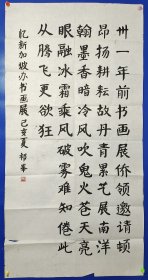 卅一年前书画展侨领邀请顿
昂扬耕耘故丹青累艺展南洋
翰墨香暗冷风吹鬼火苍天亮
眼融冰霜乘风破雾难知倦此
从腾飞更欲狂
记新加坡办书画展己亥夏